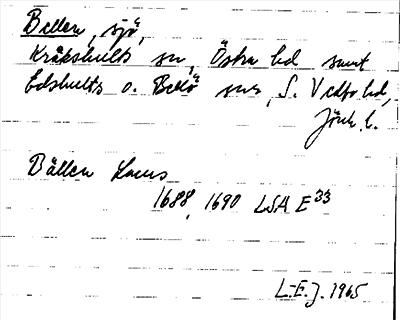 Bellen, sjö,
Kråkshults sn, Östra hd samt
Edshults o. Bellö snr, S. Vedbo hd,
Jönk. l.
Bällen Lacus
1688, 1690 LSA E33
L-E.J. 1965